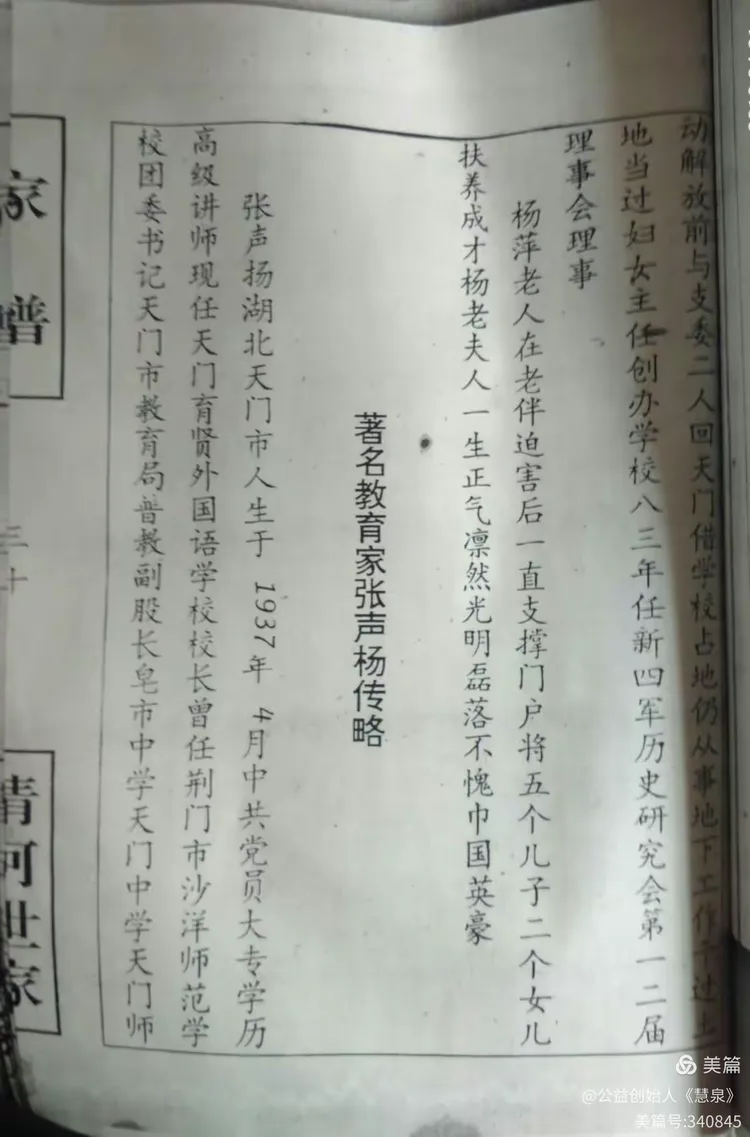 动解放前与支委二人回天门借学校占地仍从事地下工作干过土
地当过妇女主任创办学校八三年任新四军历史研究会第一二届
理事会理事
杨萍老人在老伴迫害后一直支撑门户将五个儿子二个女儿
扶养成才杨老夫人一生正气凛然光明磊落不愧巾国英豪
著名教育家张声杨传略
张声扬湖北天门市人生于1937年4月中共党员大专学历
高级讲师现任天门育贤外国语学校校长曾任荆门市沙洋师范学
校团委书记天门市教育局普教副股长皂市中学天门中学天门师
家谱
三十
清河世家
美篇
@公益创始人《慧泉》
美篇号:340845